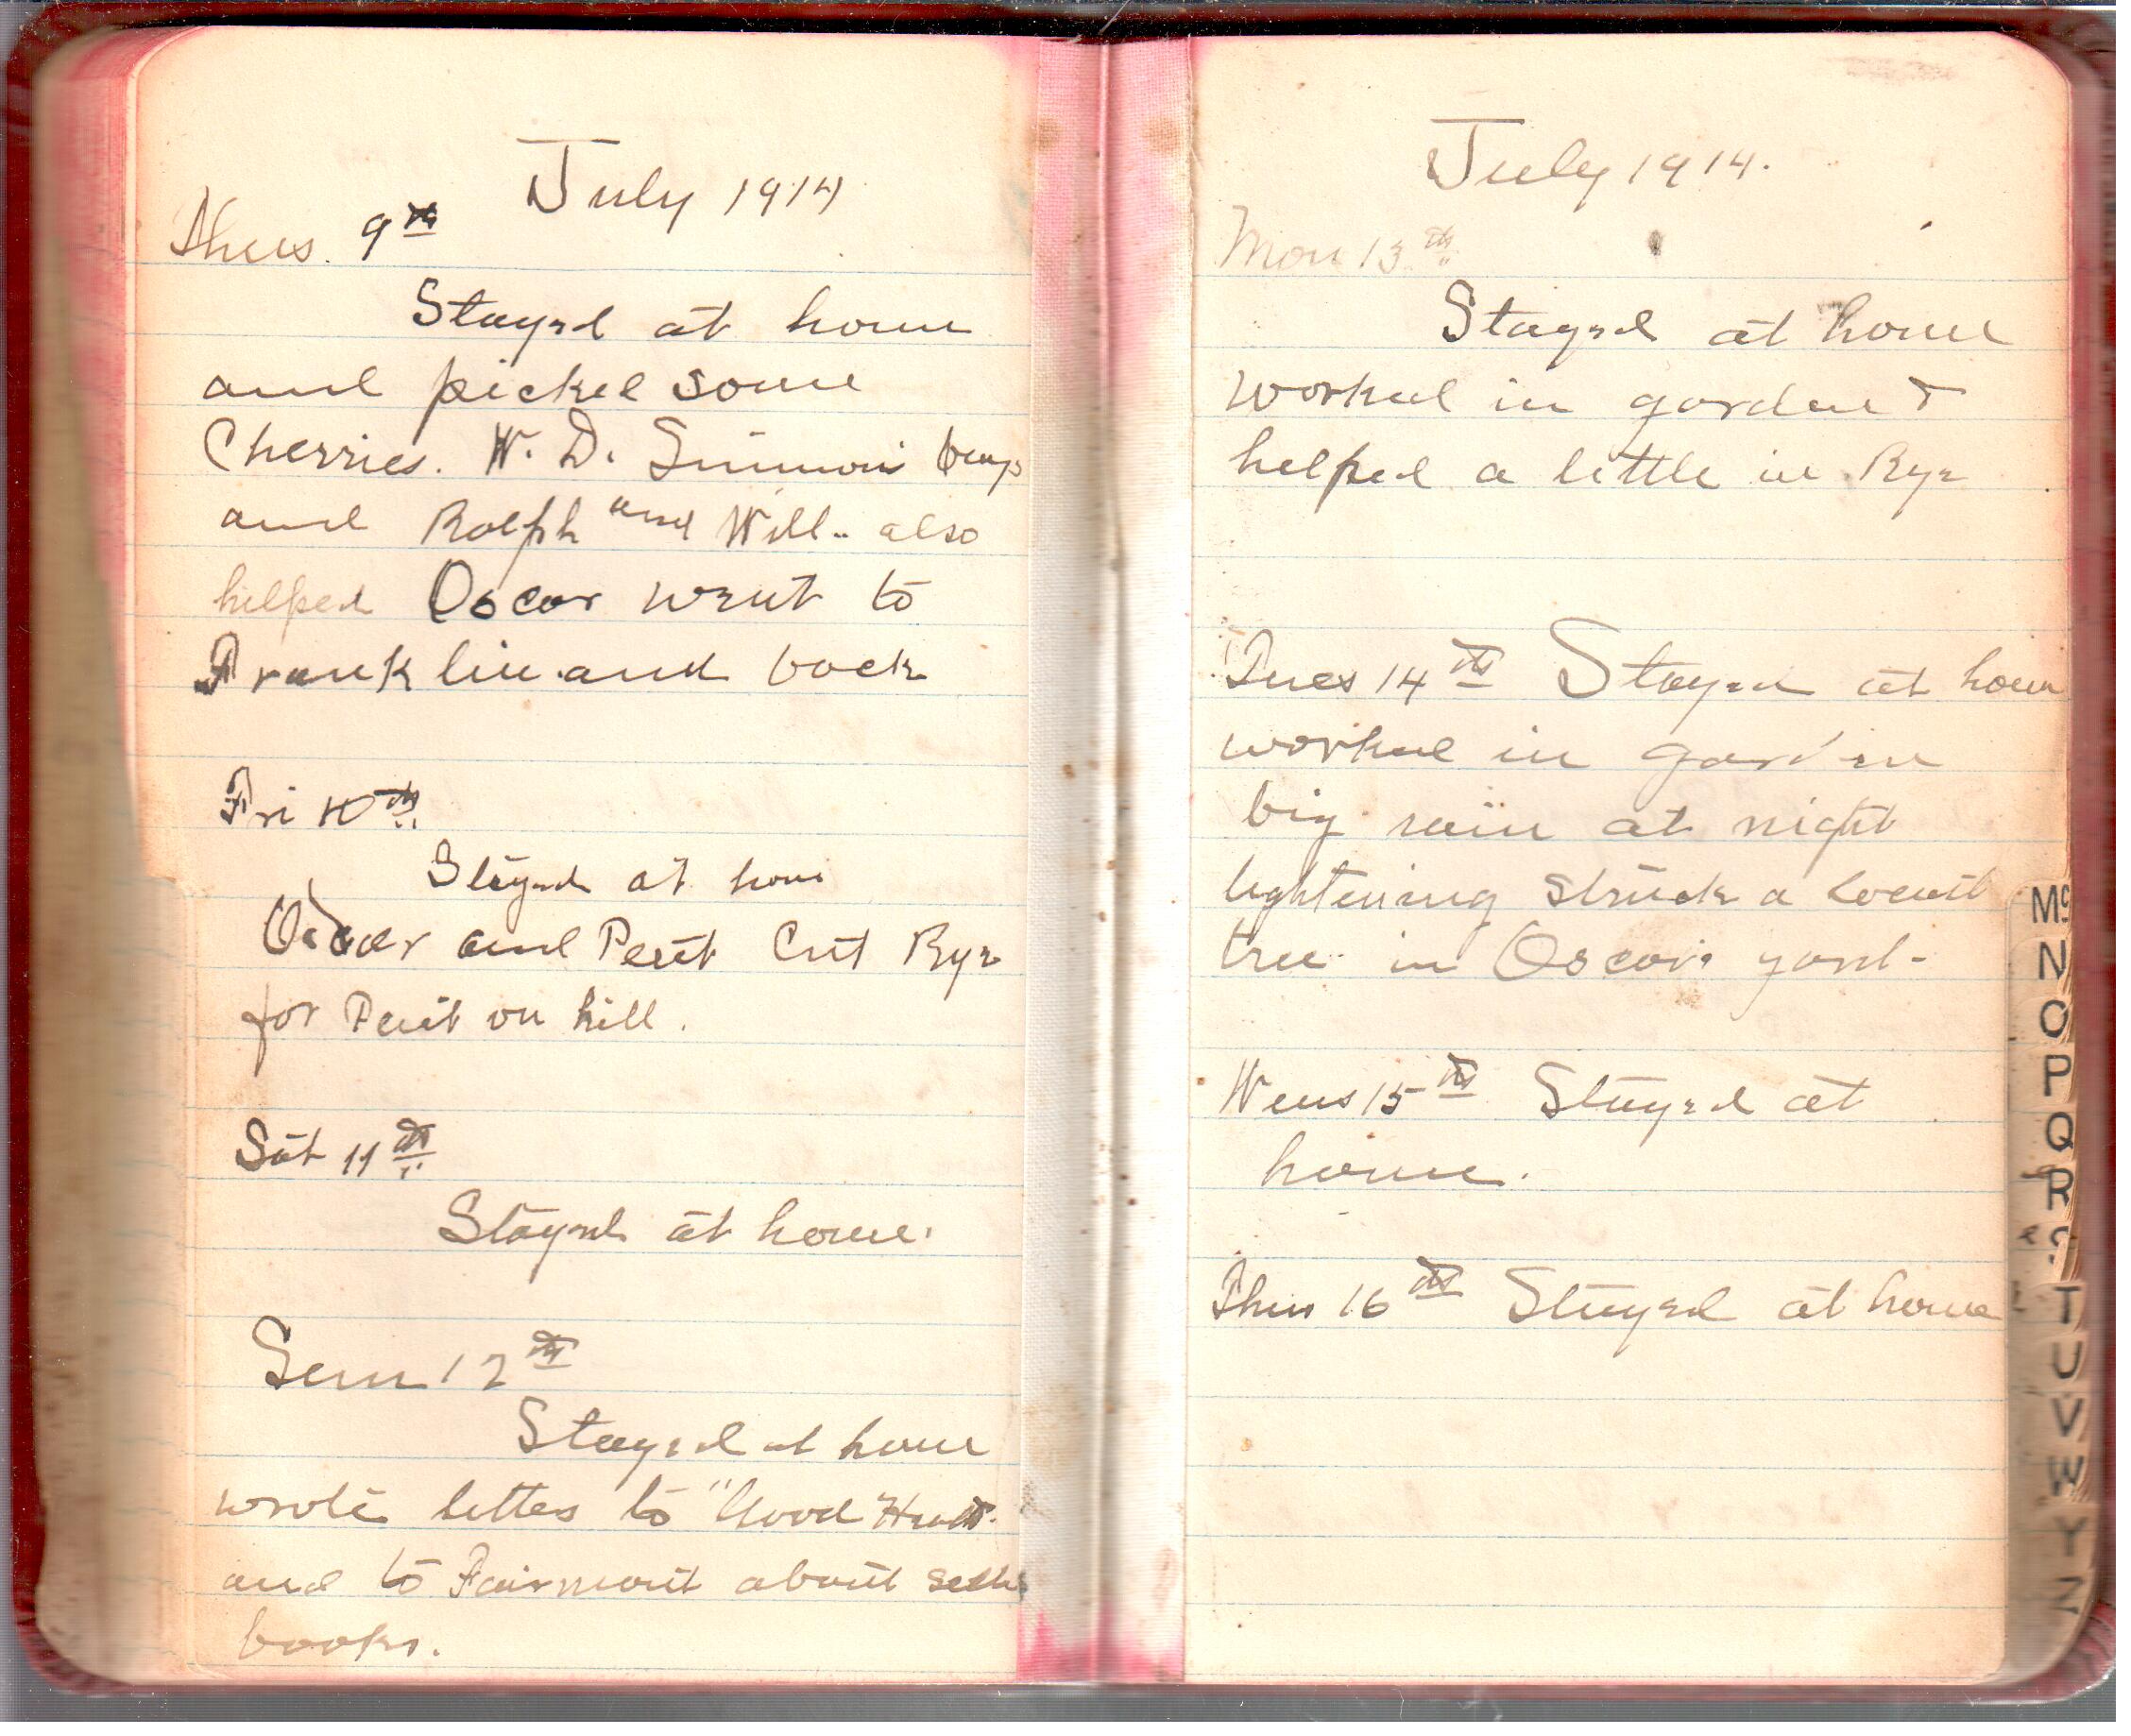 July 1914
Thurs. 9th
Stayed at home
and picked some
Cherries. W. D. Simmons boys
and Ralph and Will.. also
helped Oscar went to
Franklin and back
Fri 10th
Stayed at home
Oscar and Cut Rye
for on hill.
Sat 11th
Stayed at home.
Sun 12th
Stayed at home
wrote letters to "Good
and to Fairmont about
books.
July 1914.
Mon 13th
Stayed at home
worked in garden &
helped a little in Rye
Tues 14th Stayed at home
worked in garden
big rain at night
lightening struck a Locust
tree in Oscar's yard-
Wens 15th Stayed at
home.
Thur 16th Stayed at home
Mc
N
O
P
Q
R
T
U
V
W
Y
Z